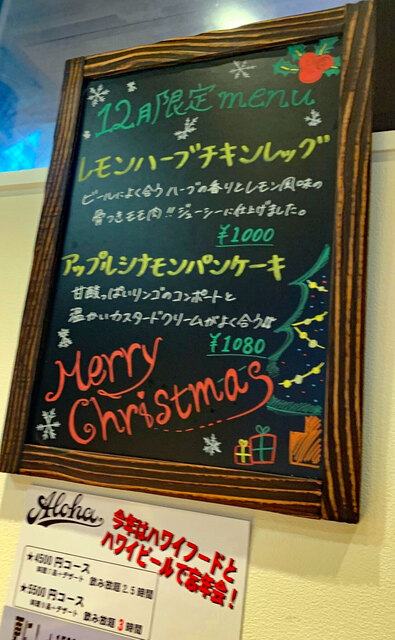 12月限定menu
レモンハーブチキンレッグ
ビールによく合うハーブの香りとレモン風味の
骨つきモモ肉!!ジューシーに仕上げました。
¥1000
アップルシナモンパンケーキ
甘酸っぱいリンゴのコンポートと
温かいカスタードクリームがよく合う!!
¥1080
Merry
Christmas
Aloha
今年はハワイフードと
ハワイビールで忘年会!
★4500円コース
飲み放題2.5時間
★5500円コース
飲み放題3時間